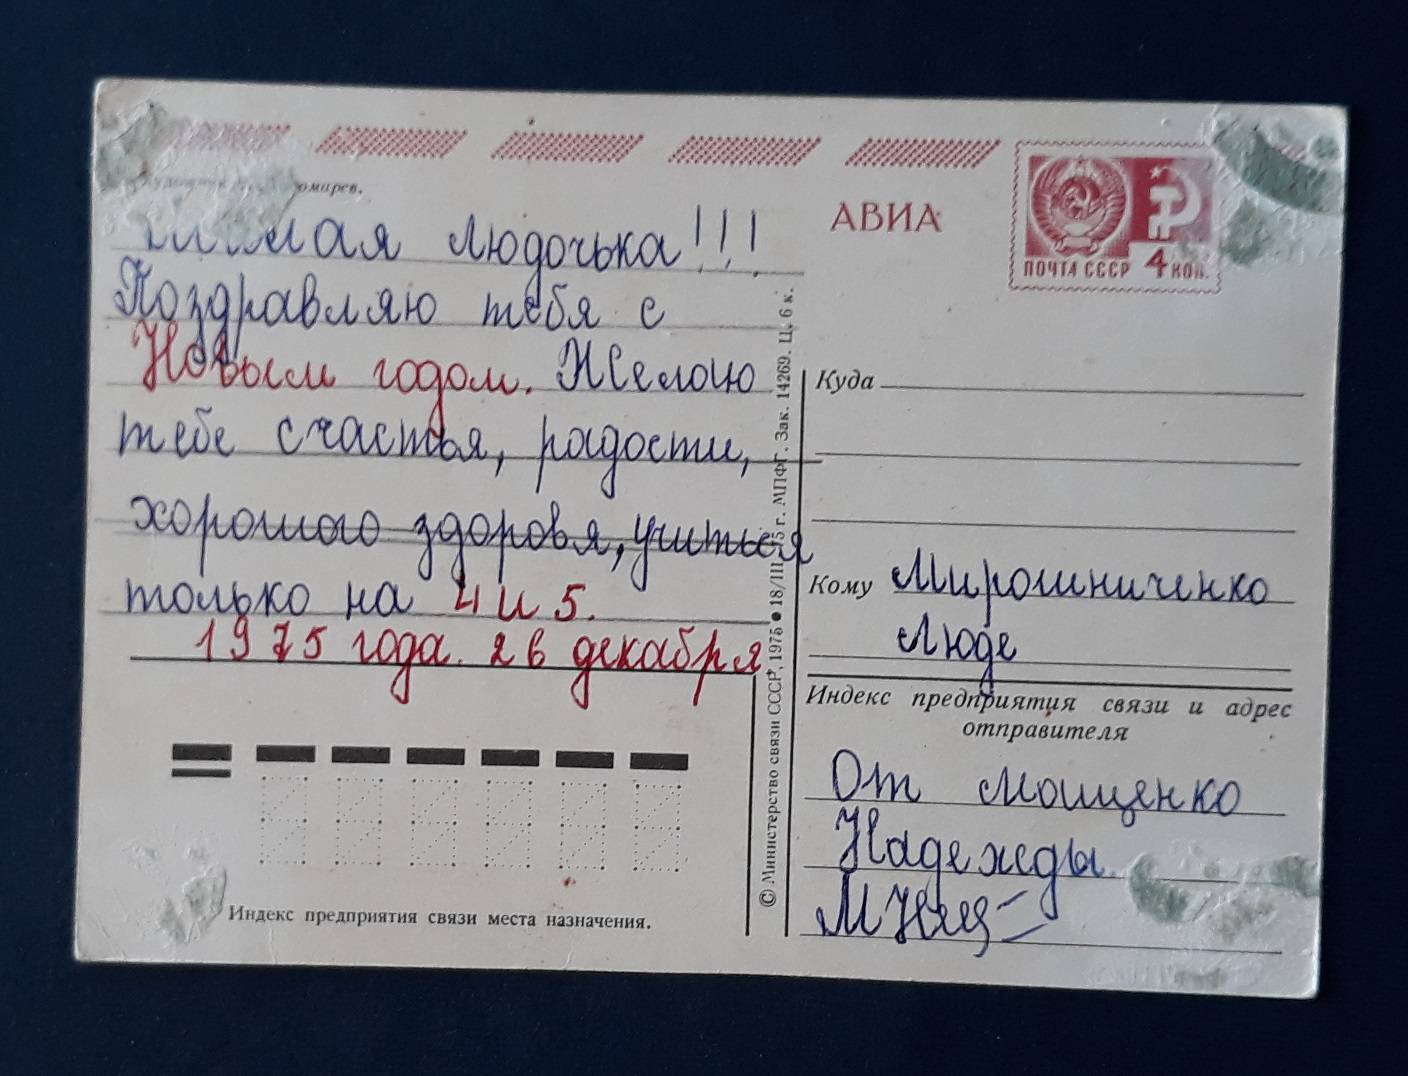 омирев.
АВИА
ПОЧТА СССР 4 КОП.
Людочька!!!
Поздравляю тебя с
Новым годом. Желаю
тебе счастья, радости,
хорошого здоровя, учиться
только на 4 и 5.
1975 года. 26 декабря
Индекс предприятия связи места назначения.
© Министерство связи СССР, 1975 ● 18/III 75 г. МПФГ. Зак. 14269. Ц. 6 к.
Куда
Кому Мирошниченко
Люде
Индекс предприятия связи и адрес
отправителя
От Мощенко
Надежды